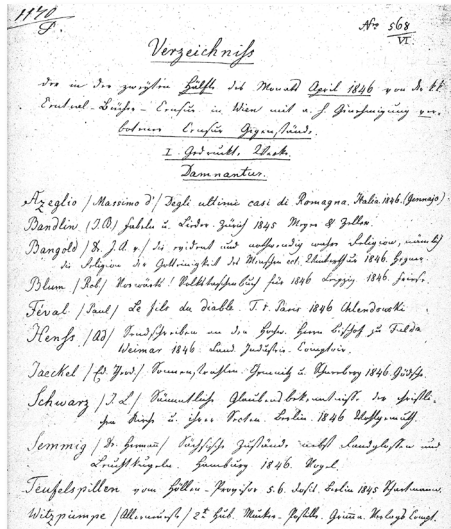 1170
P.
No 568
VI.
Verzeichniss
der in der zweyten Hälfte des Monats April 1846 von der kk
Central-Bücher-Censur in Wien mit a. h. Genehmigung ver-
botenen Censurs Gegenstände.
I. Gedruckte Werke.
Damnantur.
Azeglio /Massimo d'/ Degli ultimi casi di Romagna. Italia. 1846. (Gennajo).
Bandlin /J.B./ Fabeln u. Lieder. Zürich 1845 Meyer & Zeller.
Bangold /D. J.A. v./ die evident und nothwendig wahre Religion, nämlich
die Religion der Gotteinigkeit des Menschen
Blum /Rob/ Vorwärts! Volkstaschenbuch für 1846 Leipzig 1846. Friese.
Féval /Paul/ Le fils du diable. T. 1. Paris 1846 Chlendowski.
Henss /Ad/ Sendschreiben an den Hochw. Herrn Bischof zu Fulda
Weimar 1846. Land. Industrie-Comptoir.
Jaeckel /Ed. Theod/ Sonnenstrahlen. Grimnitz u. Schneeberg 1846. Gödsche.
Schwarz /J. L./ Sämmtliche Glaubensbekenntnisse der christli-
chen Kirche u. ihrer Secten. Berlin. 1846 Wohlgemuth.
Semmig /Dr. Herrmann/ Sächsische Zustände nebst Randglossen und
Leuchtkugeln. Hamburg 1846. Vogel.
Teufelspillen vom Höllen-Provisor 5. 6. Dosis. Berlin 1845
Witzpumpe /Allerneueste/ 2t Hub. Grimma. Verlags Compt.